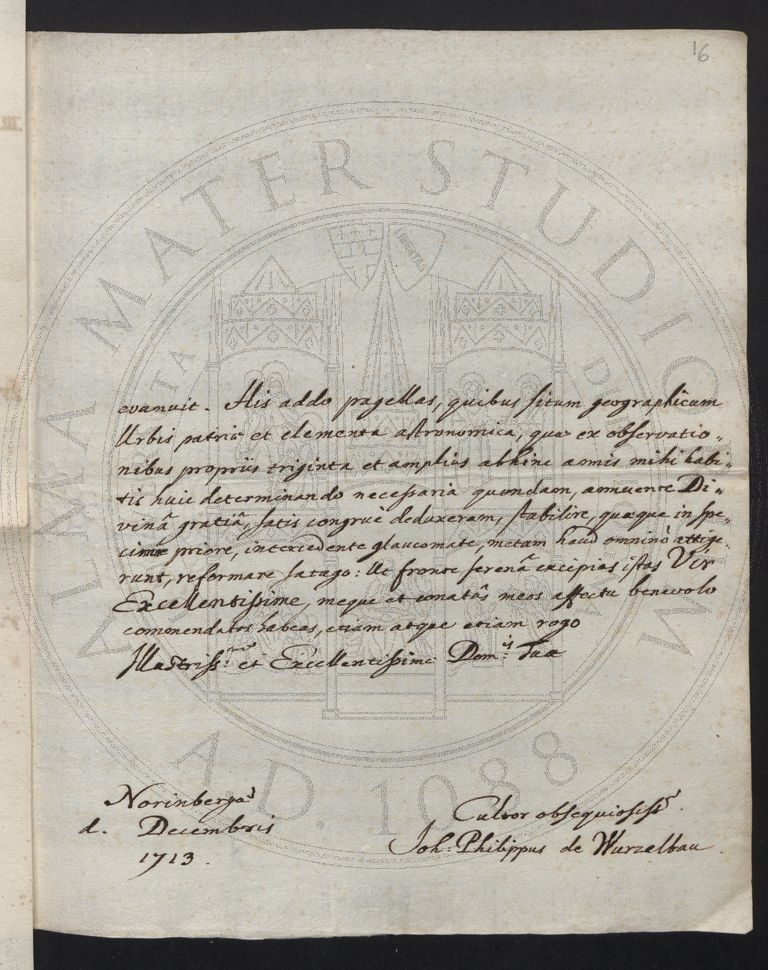 16
evanuit. His addo pagellas, quibus situm geographicum
Urbis patriæ et elementa astronomica, quæ ex observatio„
nibus propriis triginta et amplius abhinc annis mihi habi„
tis huic determinando necessaria quondam, annuente Di„
vinâ gratiâ, satis congruè deduxeram, stabilire, quæque in spe„
cimine priore, intercedente glaucomate, metam haud omninò attige„
runt, reformare satago: Ut fronte serenâ excipias istas Vir
Excellentissime, meque et conatûs meos affectu benevolo
comendatos habeas, etiam atque etiam rogo
Illustriss: et Excellentissimæ Dom: Tuæ
Norinbergæ
d. Decembris
1713.
Cultor obsequiosiss.
Joh: Philippus de Wurzelbau.
ALMA MATER STUDIORUM
A.D. 1088